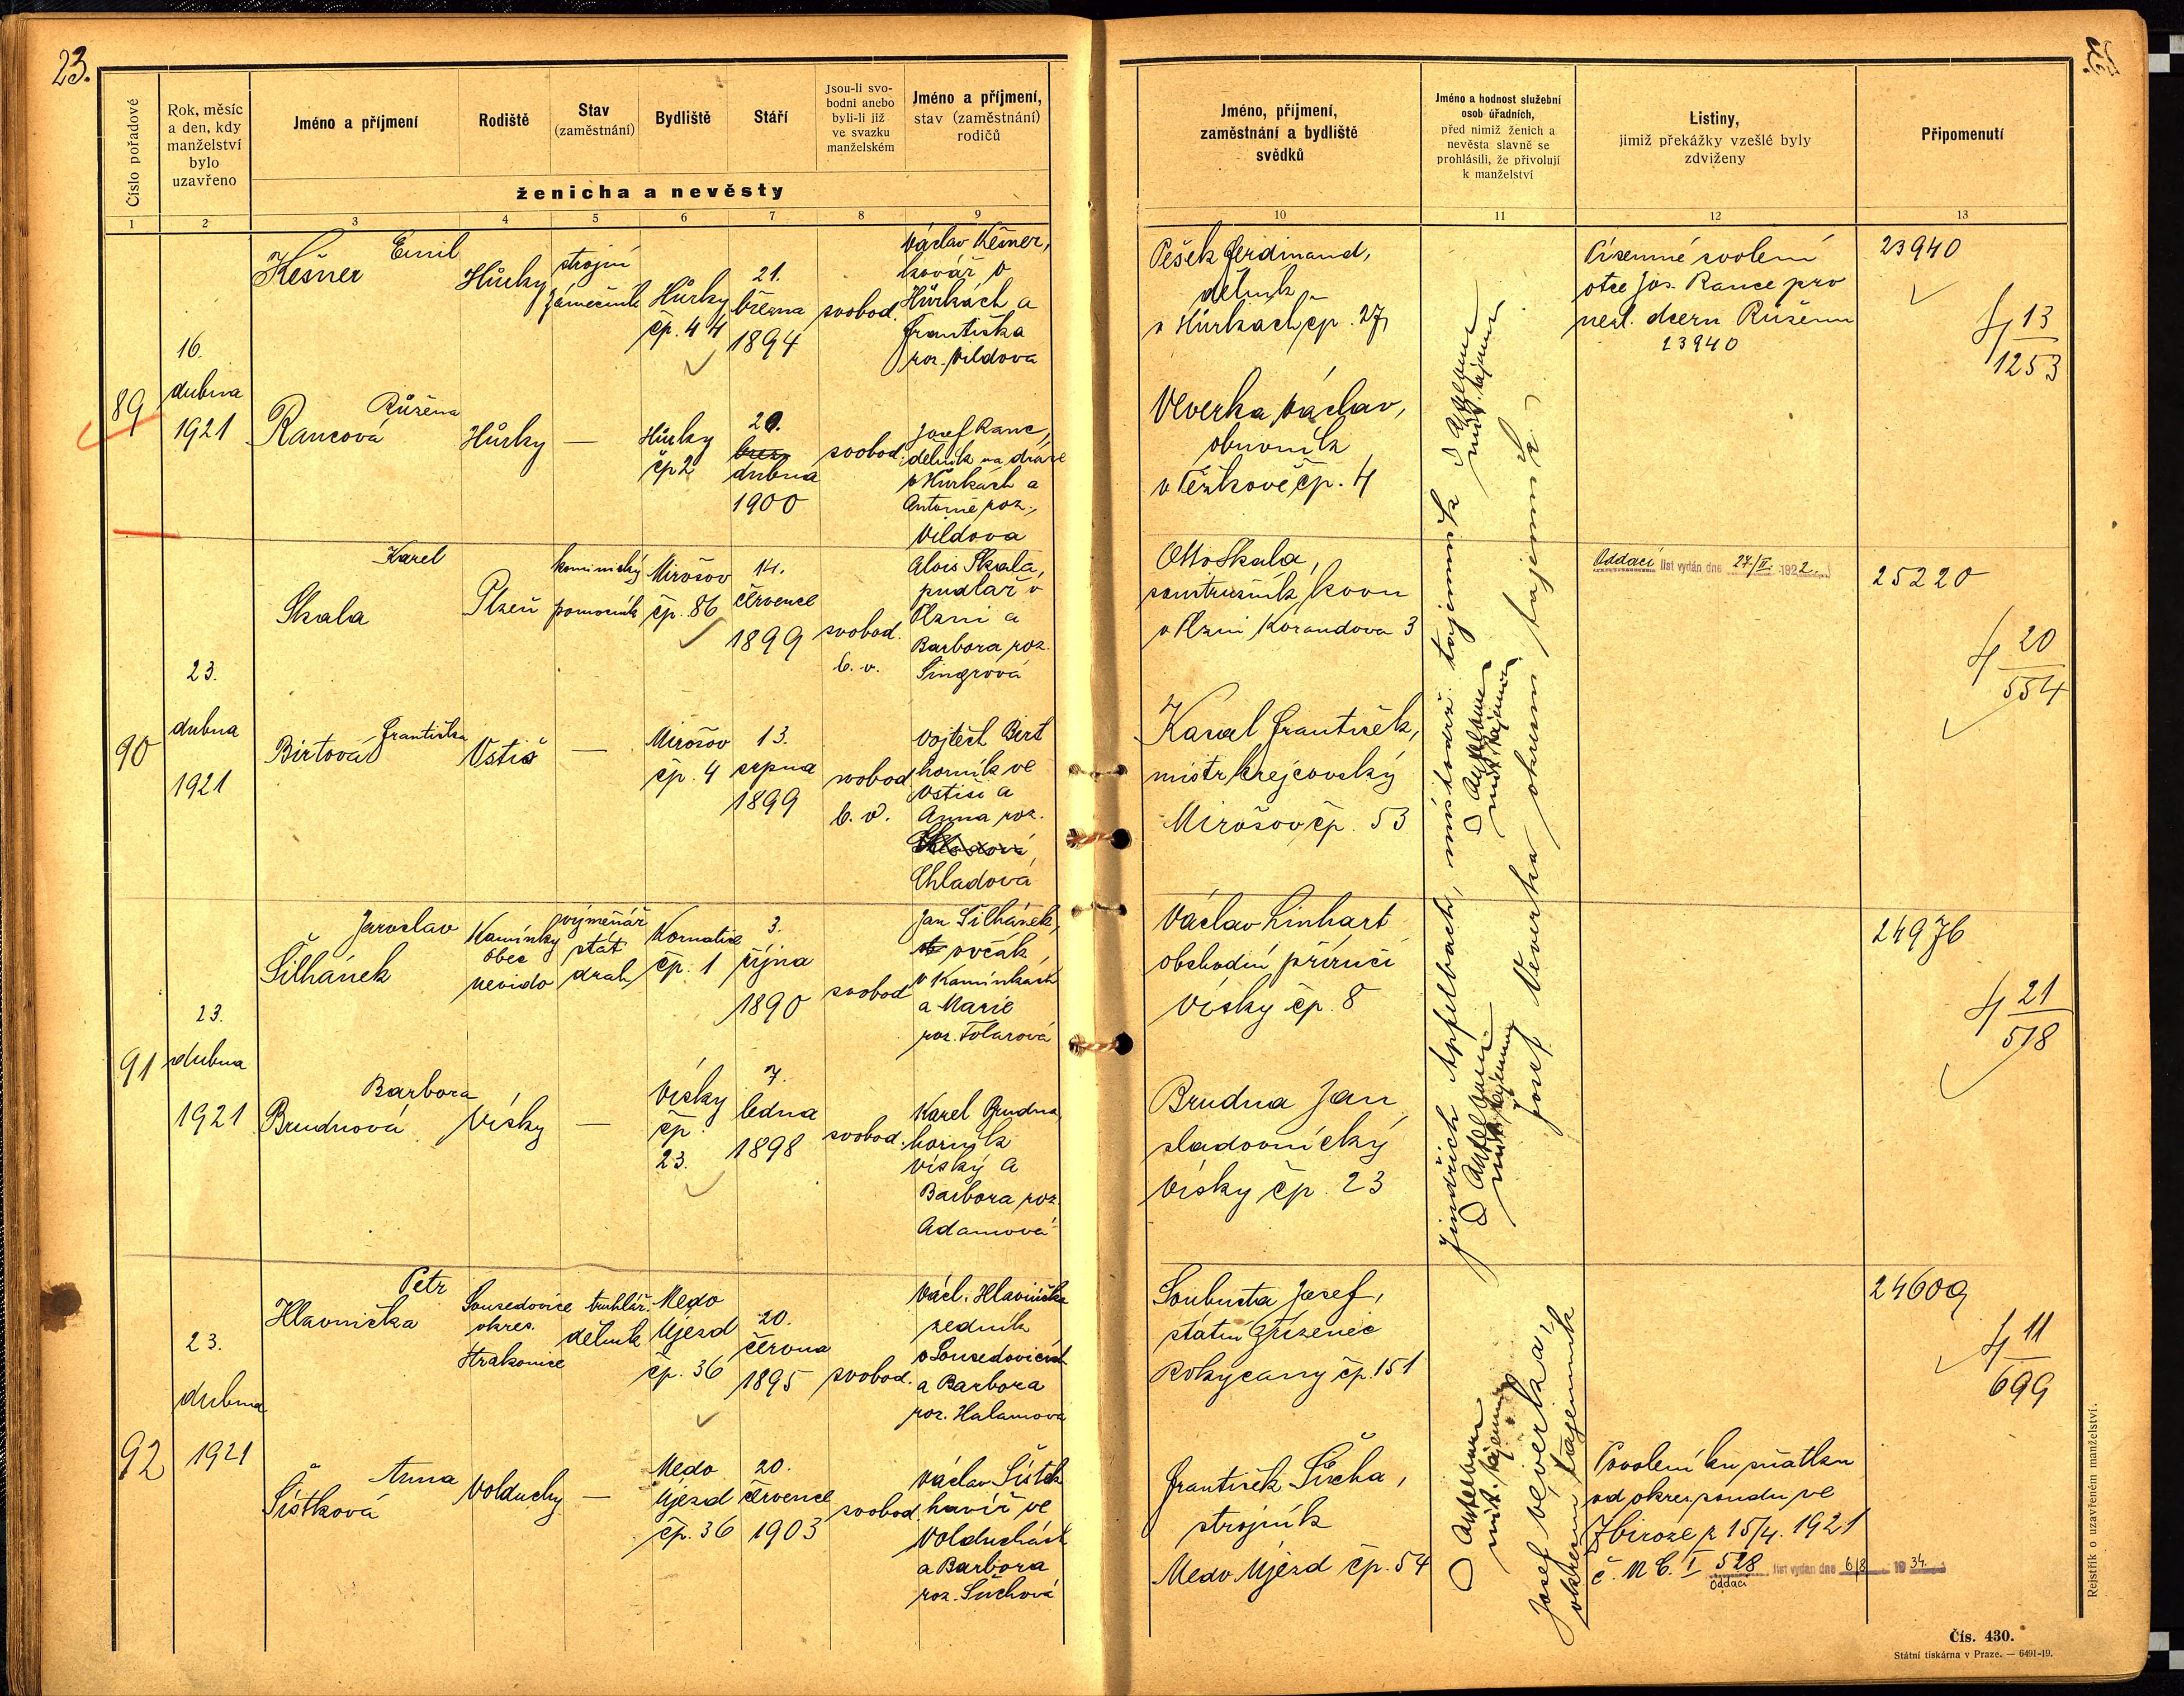 23.
Číslo pořadové
Rok, měsíc
a den, kdy
manželství
bylo
uzavřeno
Jméno a příjmení
Rodiště
Stav
(zaměstnání)
Bydliště
Stáří
Jsou-li svo-
bodni anebo
byli-li již
ve svazku
manželském
Jméno a příjmení,
stav (zaměstnání)
rodičů
ženicha a nevěsty
1 2 3 4 5 6 7 8 9
89
16.
dubna
1921
Emil
Kešner
Hůrky
strojní
zámečník
Hůrky
čp. 44
21.
března
1894
svobod.
Václav Kešner,
kovář v
Hůrkách a
Františka
roz. Vildova
Růžena
Rancová
Hůrky
—
Hůrky
čp 2
20.
dubna
1900
svobod.
Josef Ranc,
dělník na dráze
v Hůrkách a
Antonie roz.
Vildova
90
23.
dubna
1921
Karel
Skala
Plzeň
kominický
pomocník
Mirošov
čp. 86
14.
července
1899
svobod.
b. v.
Alois Skala,
pudlař v
Plzni a
Barbora roz.
Singrová
Františka
Birtová
Vstiš
—
Mirošov
čp. 4
13.
srpna
1899
svobod
b. v.
Vojtěch Birt
horník ve
Vstiši a
Anna roz.
Chladová
91
23.
dubna
1921
Jaroslav
Šilhánek
Kamínky
obec
nevido
výměnář
stát
drah
Kornatice
čp. 1
3.
října
1890
svobod
Jan Šilhánek,
ovčák
v Kamínkách
a Marie
roz. Tolarová
Barbora
Brudnová
Vísky
—
Vísky
čp
23.
7.
ledna
1898
svobod.
Karel Brudna,
horník
Vísky a
Barbora roz.
Adamová
92
23.
dubna
1921
Petr
Hlavnička
Sousedovice
okres.
Strakonice
truhlář.
dělník
Medo
Újezd
čp. 36
20.
června
1895
svobod.
Václ. Hlavnička
zedník
v Sousedovicích
a Barbora
roz. Halamova
Anna
Šístková
Volduchy
—
Medo
Újezd
čp. 36
20.
července
1903
svobod.
Václav Šístek
havíř ve
Volduchách
a Barbora
roz. Suchová
Jméno, příjmení,
zaměstnání a bydliště
svědků
Jméno a hodnost služební
osob úřadních,
před nimiž ženich a
nevěsta slavně se
prohlásili, že přivolují
k manželství
Listiny,
jimiž překážky vzešlé byly
zdviženy
Připomenutí
10 11 12 13
Pešek Ferdinand,
dělník
v Hůrkách čp. 27
Veverka Václav,
obuvník
v Těškově čp. 4
Písemné svolení
otce Jos. Rance pro
nezl. dceru Růženu
23940
23940
4 13
1253
Otto Skala,
soustružník kovu
v Plzni Korandova 3
Kasal František,
mistr krejčovský
Mirošov čp. 53
Oddací list vydán dne 27/II. 1922.
25220
4 20
554
Václav Linhart
obchodní příručí
Vísky čp. 8
Brudna Jan
sladovnický
Vísky čp. 23
24976
4 21
518
Soubusta Josef,
státní zřízenec
Rokycany čp. 151
František Šícha,
strojník
Medo Újezd čp. 54
Jindřich Apfelbach, místodrž. tajemník
Josef Veverka okresní tajemník
Josef Veverka,
okresní tajemník
Povolení ku sňatku
od okres. soudu ve
Zbiroze z 15/4. 1921
č. Nc. I 528
Oddací list vydán dne 6/8 1934.
24609
4 11
699
Rejstřík o uzavřeném manželství.
Čís. 430.
Státní tiskárna v Praze. — 6491-19.